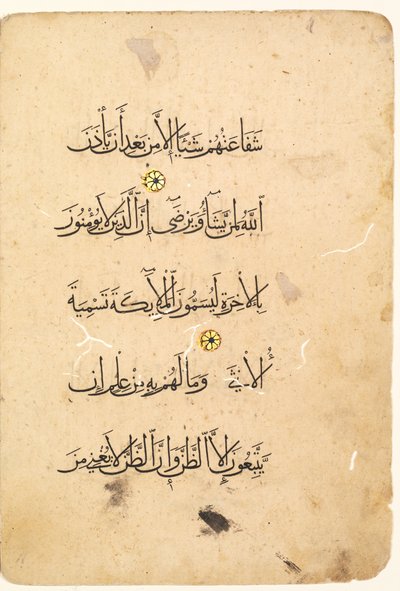 شَفَاعَتُهُمْ شَيْئًا إِلَّا مِنْ بَعْدِ أَنْ يَأْذَنَ
اللَّهُ لِمَنْ يَشَاءُ وَيَرْضَى إِنَّ الَّذِينَ لَا يُؤْمِنُونَ
بِالْآخِرَةِ لَيُسَمُّونَ الْمَلَائِكَةَ تَسْمِيَةَ
الْأُنْثَى وَمَا لَهُمْ بِهِ مِنْ عِلْمٍ إِنْ
يَتَّبِعُونَ إِلَّا الظَّنَّ وَإِنَّ الظَّنَّ لَا يُغْنِي مِنَ